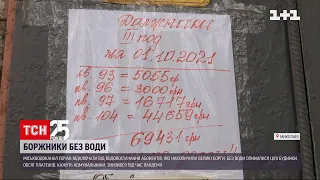 1+1
МИКОЛАЇВ
Должники
III под
на 01.10.2021
кв. 93 = 5055 гр
кв. 96 = 3000 грн
кв. 97 = 16717 грн
кв. 104 = 44659 грн
69431 грн
ТСН 25
БОРЖНИКИ БЕЗ ВОДИ
МІСЬКВОДОКАНАЛ ПОЧАВ ВІДКЛЮЧАТИ ВІД ВОДОПОСТАЧАННЯ АБОНЕНТІВ, ЯКІ НАКОПИЧИЛИ ВЕЛИКІ БОРГИ. БЕЗ ВОДИ ОПИНИЛИСЯ ЦІЛІ БУДИНКИ.
ОБСЯГ ПЛАТЕЖІВ, КАЖУТЬ КОМУНАЛЬНИКИ, ЗНИЗИВСЯ ПІД ЧАС ПАНДЕМІЇ